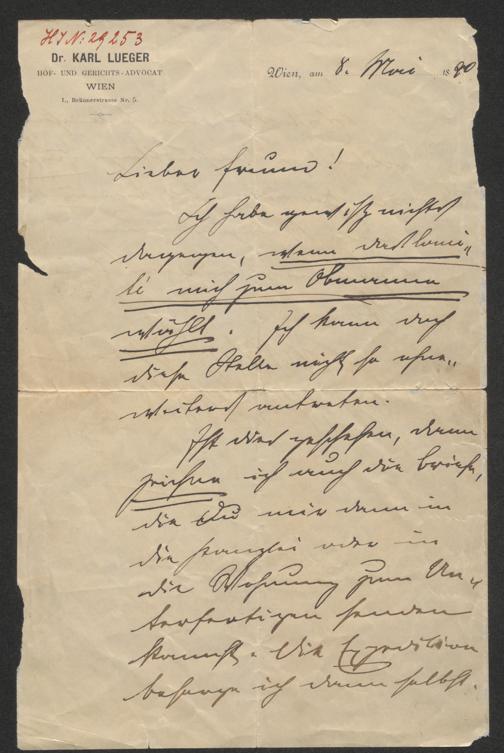 HIN: 29253
Dr. KARL LUEGER
HOF- UND GERICHTS-ADVOCAT
WIEN
I., Bräunerstrasse Nr. 5.
Wien, am 8. Mai 1890
Lieber Freund!
Ich habe gewiß nichts
dagegen, wenn das Comi-
té mich zum Obmanne
wählt. Ich kann doch
diese Stelle nicht so ohne
weiters antreten.
Ist dies geschehen, dann
zeichne ich auch die Briefe,
die Du mir dann in
die Kanzlei oder in
die Wohnung zum Un-
terfertigen senden
kannst. Die Expedition
besorge ich dann selbst.